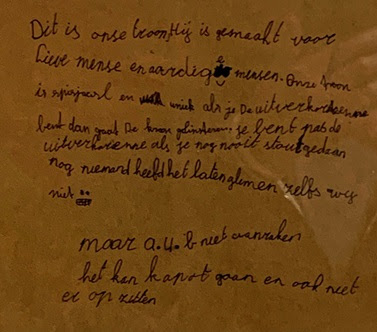 Dit is onse troon. Hij is gemaakt voor
Lieve mense en aardige mensen. Onze troon
is speciaal en uniek als je De uitverkorenne
bent dan gaat De kroon gelinsteren. je bent pas de
uitverkorenne als je nog nooit stout gedaan
nog niemand heefd het laten glimen zelfs wij
niet
maar a.u.b niet aanraken
het kan kapot gaan en ook niet
er op zitten